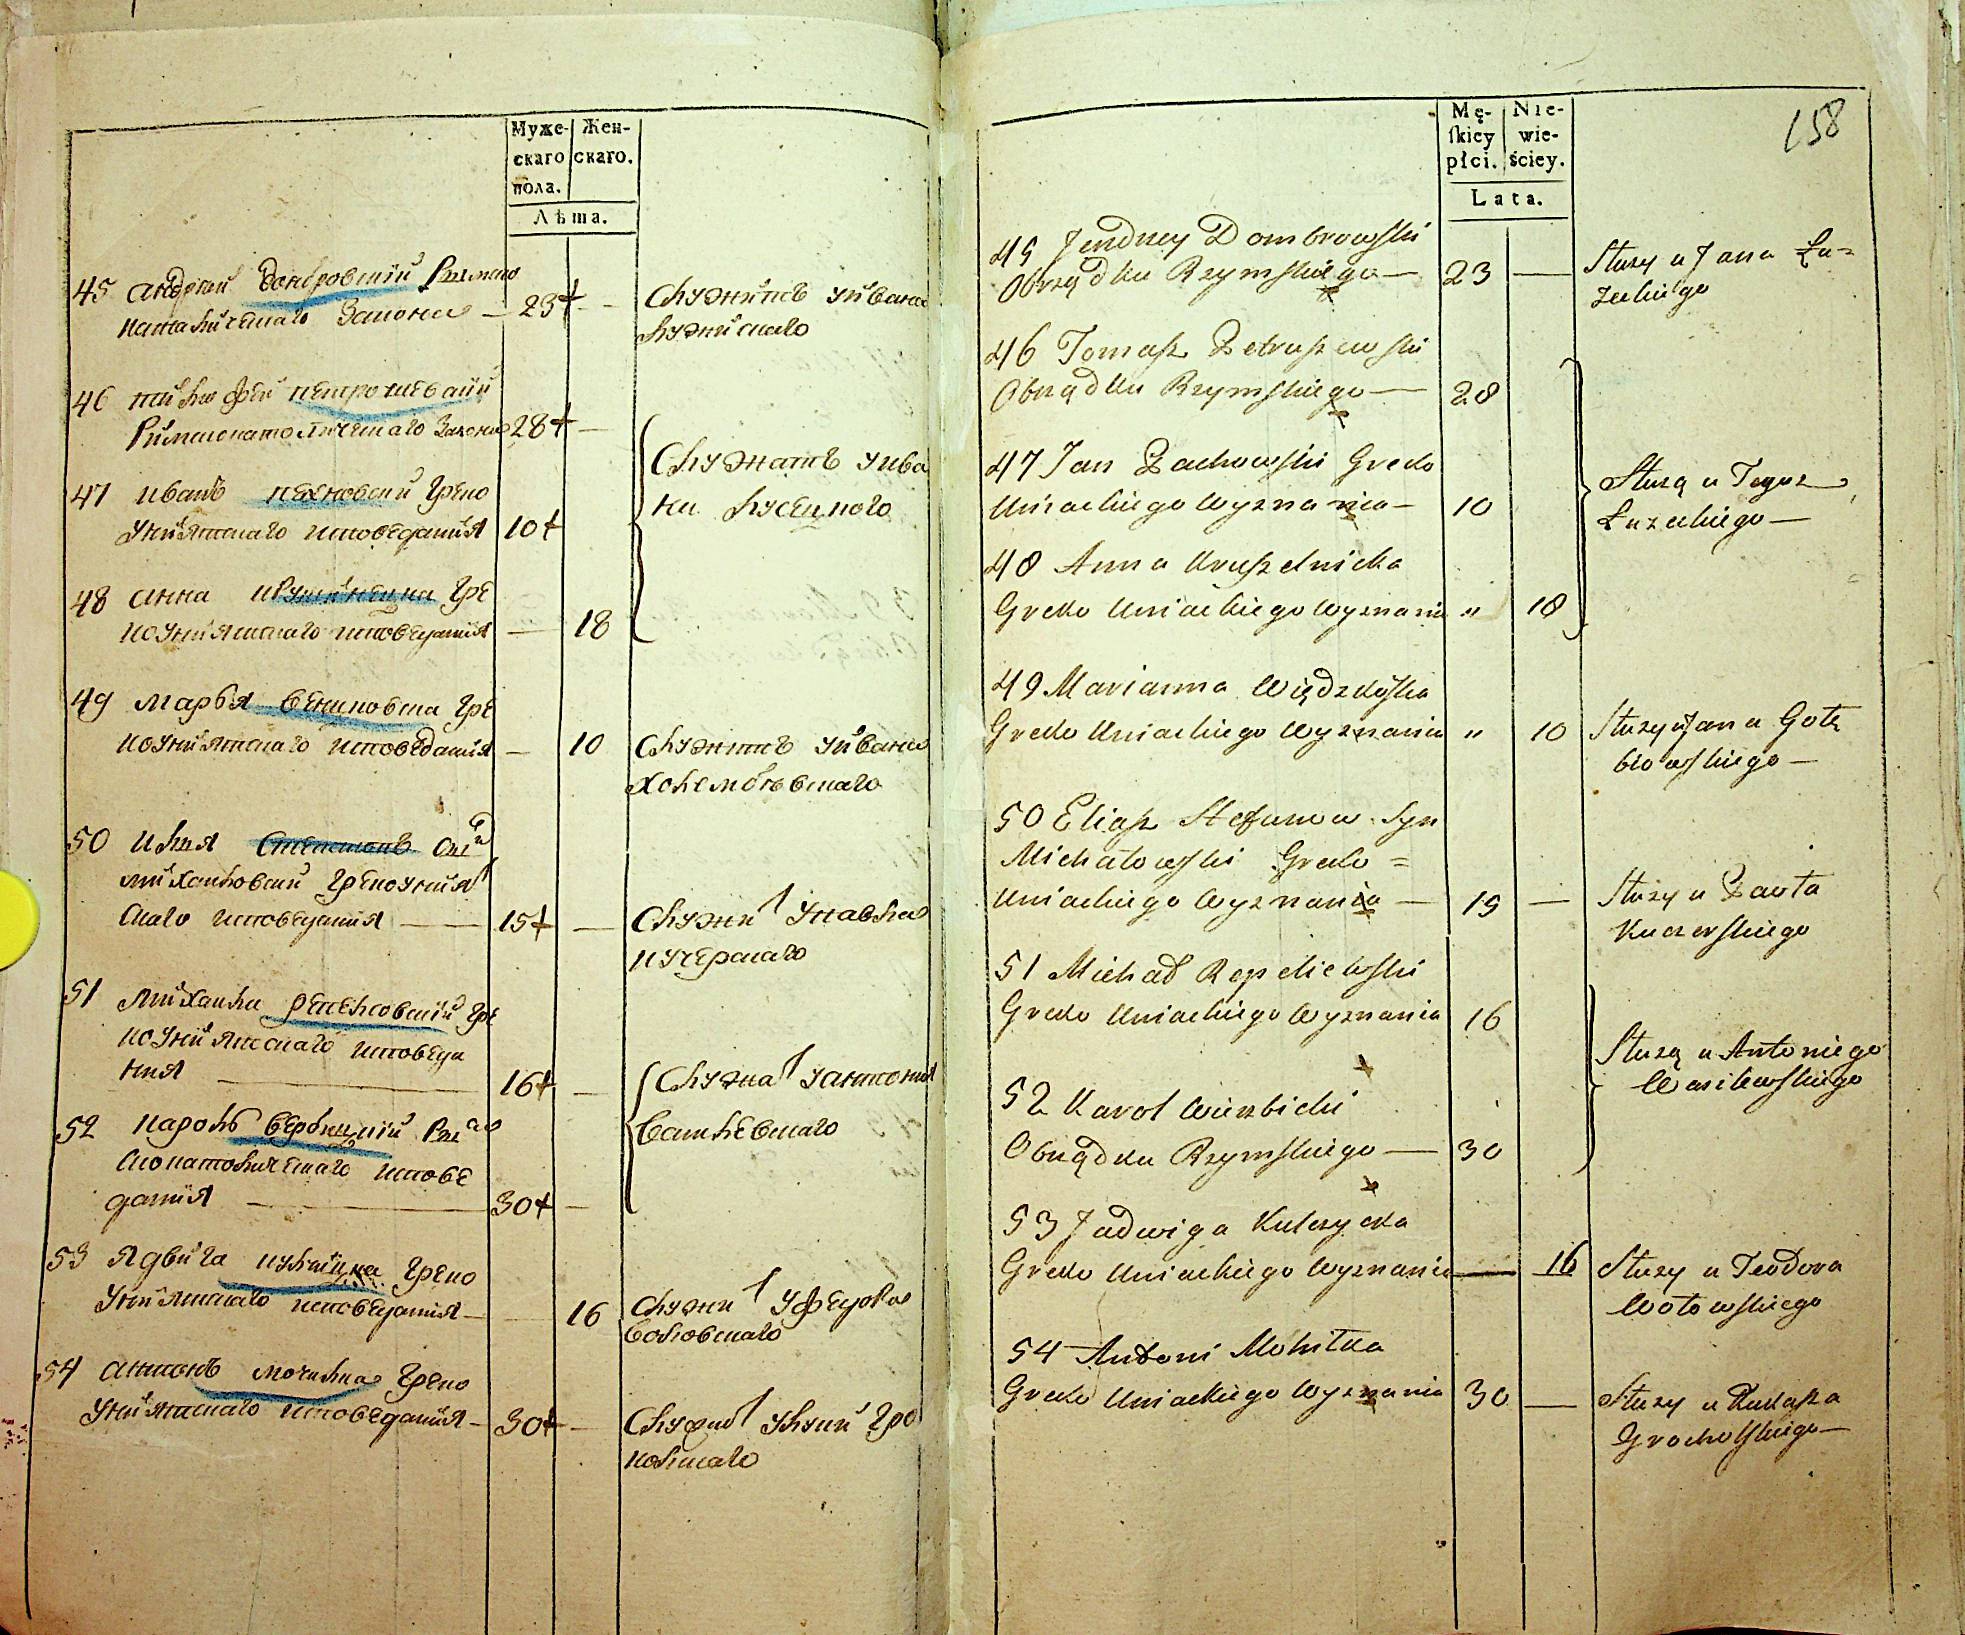 Муже-
скаго
пола.
Жен-
скаго.
Лѣта.
45 Андрей Домбровскій Римско
католическаго Закона — 23 —
Служитъ уИвана
Лузкiскаго
46 Тимофей Петрошевскій
Римскокатолическаго Закона 28 —
47 Иванъ Пахновскій Греко
Униятскаго исповеданія 10
Служатъ уИва
на Лусецкого
48 Анна Грe
коуниятскаго исповеданія — 18
49 Марья Венцковска Гре
коуниятскаго исповеданія — 10
Служитъ уИвана
50 Илія Степановъ Сынъ
Михаловскій Грекоуният
скаго исповеданія — 15 —
Служит уПавла
Кучерскаго
51 Михаила Репеловскій Гре
коуниятскаго исповеда
нія — 16 —
52 Кароль Вербицкій Римско
католическаго испове
данія — 30 —
Служат уАнтонія
Василевскаго
53 Ядвига Кульчицка Греко
Униятскаго исповеданія — 16
Служит уФедора
Воловскаго
54 Антонъ Мочилка Греко
Униятскаго исповеданія — 30 —
Служит уЛуки Гро
холскаго
158
Mę-
skiey
płci.
Nie-
wie-
ściey.
Lata.
45 Jendrzey Dombrowski
Obrządku Rzymskiego — 23 —
Służy u Jana Łu-
zeckiego
46 Tomasz Petruszewski
Obrządku Rzymskiego — 28
47 Jan Pachowski Greko
Uniackiego wyznania — 10
Służą u Tegoż
Łuzeckiego —
48 Anna Kruszelnicka
Greko Uniackiego wyznania " 18
49 Marianna Więdzkoska
Greko Uniackiego wyznania " 10
Służy u Jana Gołę
biowskiego —
50 Eliasz Stefanow Syn
Michałowski Greko =
Uniackiego wyznania — 15 —
Służy u Pawła
Kuczerskiego
51 Michał Repeliewski
Greko Uniackiego wyznania 16
Służą u Antoniego
Wasilewskiego
52 Karol Wierzbicki
Obrządku Rzymskiego — 30
53 Jadwiga Kulczycka
Greko Uniackiego wyznania — 16
Służy u Teodora
Wołowskiego
54 Antoni Molutka
Greko Uniackiego wyznania 30 —
Służy u Łukasza
Grocholskiego —